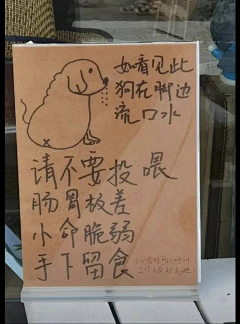 如看见此
狗在脚边
流口水
请不要投喂
肠胃极差
小命脆弱
手下留食